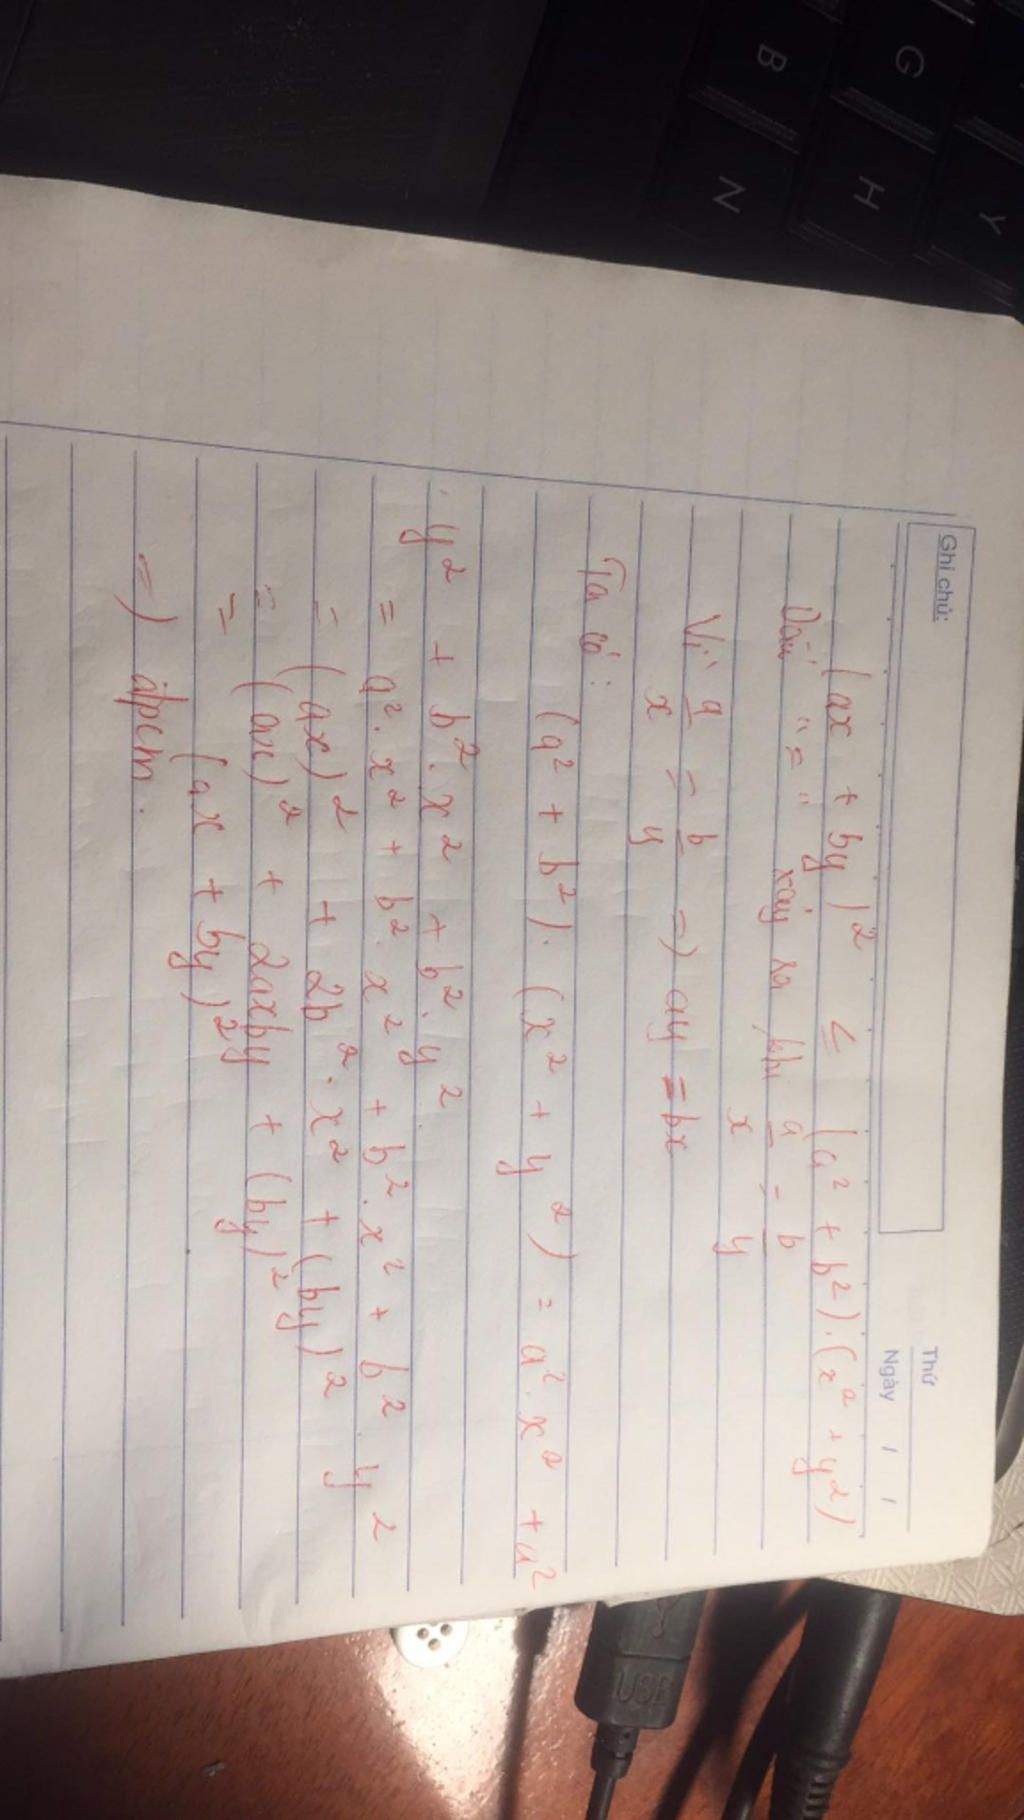 Ghi chú:
Thứ
Ngày / /
(ax + by)² ≤ (a² + b²).(x² + y²)
Dấu "=" xảy ra khi a/x = b/y
Vì a/x = b/y => ay = bx
Ta có:
(a² + b²).(x² + y²) = a².x² + a²
.y² + b².x² + b².y²
= a².x² + b².x² + b².x² + b² y²
= (ax)² + 2b².x² + (by)²
= (ax)² + 2axby + (by)²
= (ax + by)²
=) đpcm.
B
G
N
H
Y
USB